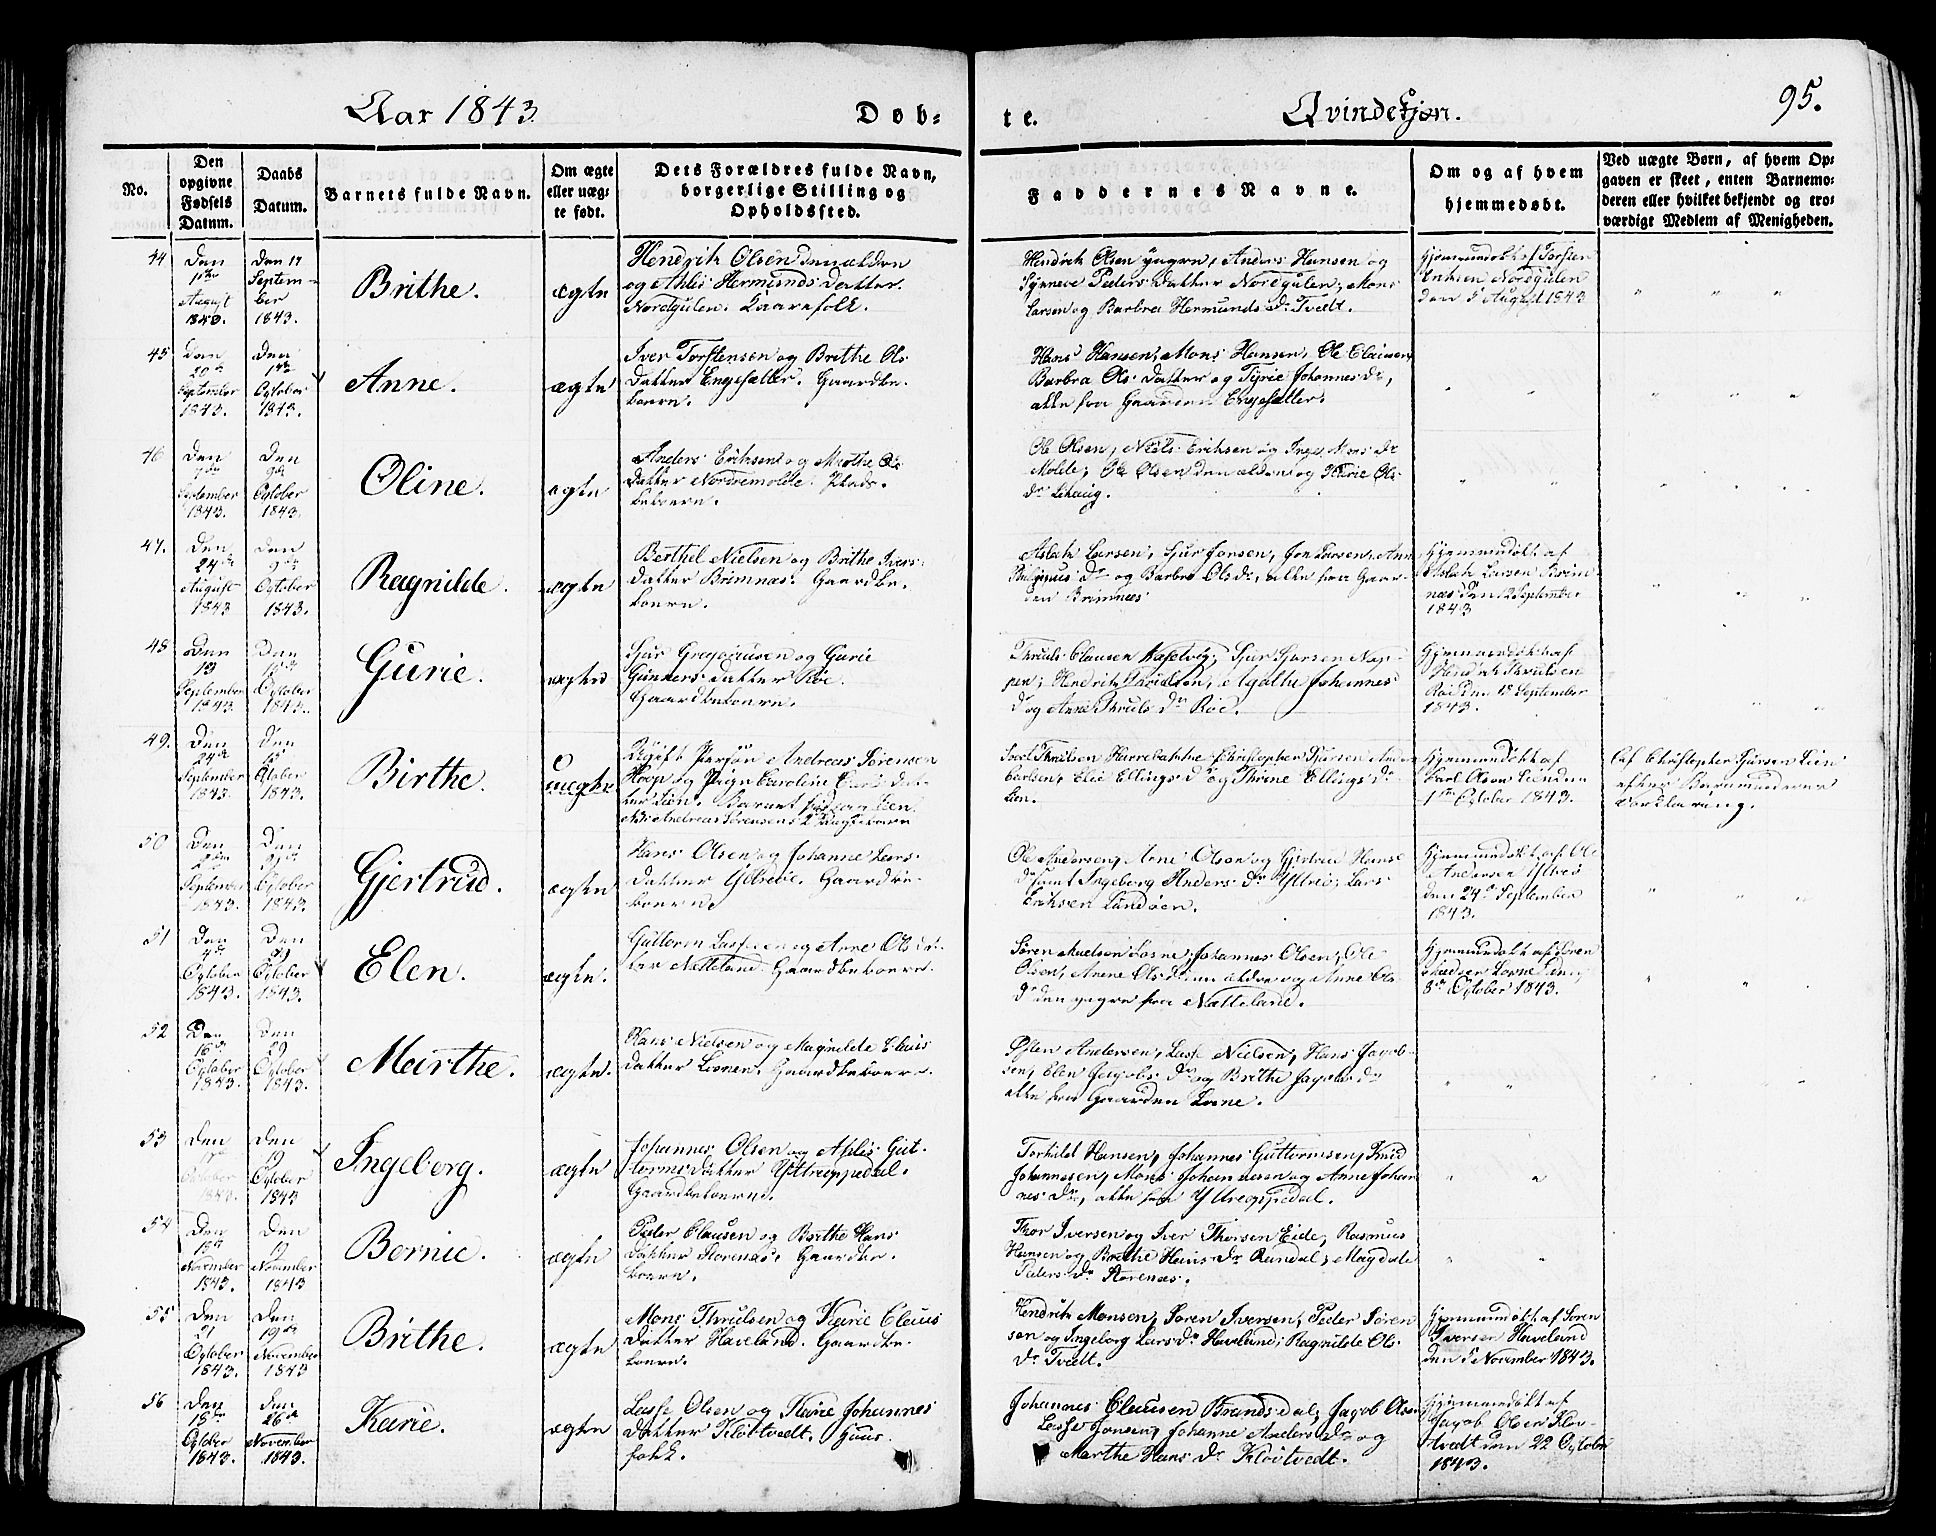 Aar 1843
Døb-
te.
Qvindekjøn.
95.
No.
Den opgivne Fødsels Datum.
Daabs Datum.
Barnets fulde Navn.
Om ægte eller uæg-te født.
Dets Forældres fulde Navn, borgerlige Stilling og Opholdssted.
Faddernes Navne.
Om og af hvem hjemmedøbt.
Ved uægte Børn, af hvem Op-
gaven er skeet, enten Barnemo-
deren eller hvilket bekjendt og tro-
værdigt Medlem af Menigheden.
44
Den
August
1843.
Den 17
Septem-
ber
1843.
Brithe.
ægte
Hendrik Olsen den ældre
og Athlis Hermundsdatter
Nordgulen. Huusfolk.
Hendrik Olsen yngre, Anders Hansen og
Synneve Peders datter Nordgulen, Mons
Larsen og Barbra Hermunds Dr Tvedt.
Hjemmedøbt af Torsten
Nordgulen
den 5 August 1843
45
Den
20de
September
1843.
Den
1ste
October
1843.
Anne.
ægte
Iver Torstensen og Brithe Ols
datter Engesætter. Gaardbe-
boere.
Hans Hansen, Mons Hansen, Ole Clausen
Barbra Olsdatter og Tyrie Johannes Dr,
alle fra Gaarden Engesætter.
46
Den
September
1843.
Den
October
1843.
Oline.
ægte
Anders Eriksen og Marthe Ols
datter Nordremolde. Plads-
beboere.
Ole Olsen, Niels Eriksen og Inge Mons Dr
Molde, Ole Olsen den ældre og Kari Ols
Dr
47.
Den
24de
August
1843
Den
October
1843.
Ragnilde.
ægte
Berthel Nielsen og Brithe Ivers-
datter Brimnæs. Gaardbe-
boere.
Aslak Larsen, Sjur Jonsen, Jon Larsen,
Dr og Barbra Ols Dr, alle fra Gaar-
den Brimnæs
Hjemmedøbt af
Aslak Larsen Brim-
næs den 12 September
1843
48
Den
13
September
1843.
Den
15de
October
1843.
Gurie.
ægte
Sjur Gregoriusen og Gurie
Gunnersdatter Roe.
Gaardbeboere.
Thruls Clausen, Sjur Sjursen Nap-
pen, Hendrik, Agathe Johannes
Dr og Anne Thruls Dr Roe.
Hjemmedøbt af
Hendrik Thrulsen
Roe den September
1843.
49.
Den
24de
September
1843.
Den
15
October
1843.
Birthe.
uægte
Ugift Person Andreas Sørensen
Hoop og Pige Caroline dat-
ter Lien. Barnet
Andreas Sørensens 2
Carl Thrulsen, Christopher Sjursen
Larsen, Elie Ellings Dr og Thrine Ellings Dr
Lien.
Hjemmedøbt af
Carl Olsen
1ste October 1843.
Af Christopher Sjursen Lien
efter Barnemoderens
Forklaring.
50
Den
September
1843.
Den
October
1843.
Gjertrud.
ægte
Hans Olsen og Johanne Lars-
datter Ytreøe. Gaardbe-
boere.
Ole Andersen, Arne Olsen og Gjertrud Hans
Dr samt Ingeborg Anders Dr Ytreøe, Lars
Eriksen Sundøen.
Hjemmedøbt af Ole
Andersen Ytreø
den 24de September
1843.
51
Den
October
1843.
Den
29
October
1843.
Elen.
ægte.
Guttorm Lassesen og Anne Ols dat-
ter Nætteland. Gaardbeboere.
Søren Losne, Johannes Olsen, Ole
Olsen, Anne Ols Dr den ældre og Anne Ols
Dr den yngre fra Nætteland.
Hjemmedøbt af Søren
Losne den
8de October 1843.
52
Den
16de
October
1843.
Den
29
October
1843.
Marthe.
ægte.
Hans Nielsen og Magnilde Claus
datter Losne. Gaardbeboere.
Andersen, Lasse Nielsen, Hans Jacob-
sen, Elen Jacobs Dr og Brithe Jacobs Dr
alle fra Gaarden Losne.
53
Den
October
1843.
Den
19
October
1843
Ingeborg.
ægte
Johannes Olsen og Athlis Gut-
tormsdatter Yttreoppedal.
Gaardbeboere.
Torkild Hansen, Johannes Guttormsen, Knud
Johannesen, Mons Johannesen og Anne Johan-
nes Dr, alle fra Yttreoppedal.
54
Den
November
1843.
Den
12
November
1843
Bernie.
ægte
Peder Clausen og Brithe Hans
datter Storenæs. Gaardbe-
boere.
Thor Iversen og Iver Thorsen Eide, Rasmus
Hansen og Brethe Hans Dr Rundal, Magdale
Peders Dr Storenæs.
55
Den
21
October
1843.
Den
19de
November
1843
Brithe.
ægte
Mons Thrulsen og Karie Claus
datter Haveland. Gaardbe-
boere.
Hendrik Monsen, Søren Iversen, Peder Søren
sen og Ingeborg Lars Dr Haveland, Ragnilde Ols
Dr Tvedt.
Hjemmedøbt af Søren
Iversen Haveland
den 5 November 1843.
56
Den
October
1843.
Den
26de
November
1843.
Karie.
ægte
Lasse Olsen og Karie Johannes
datter Kløvtvedt. Huus-
folk.
Johannes Clausen Brandsdal, Jacob Olsen
Lasse Jonsen, Johanne Anders Dr og
Marthe Hans Dr Kløvtvedt.
Hjemmedøbt af
Jacob Olsen Kløv-
tvedt den 22 October
1843.